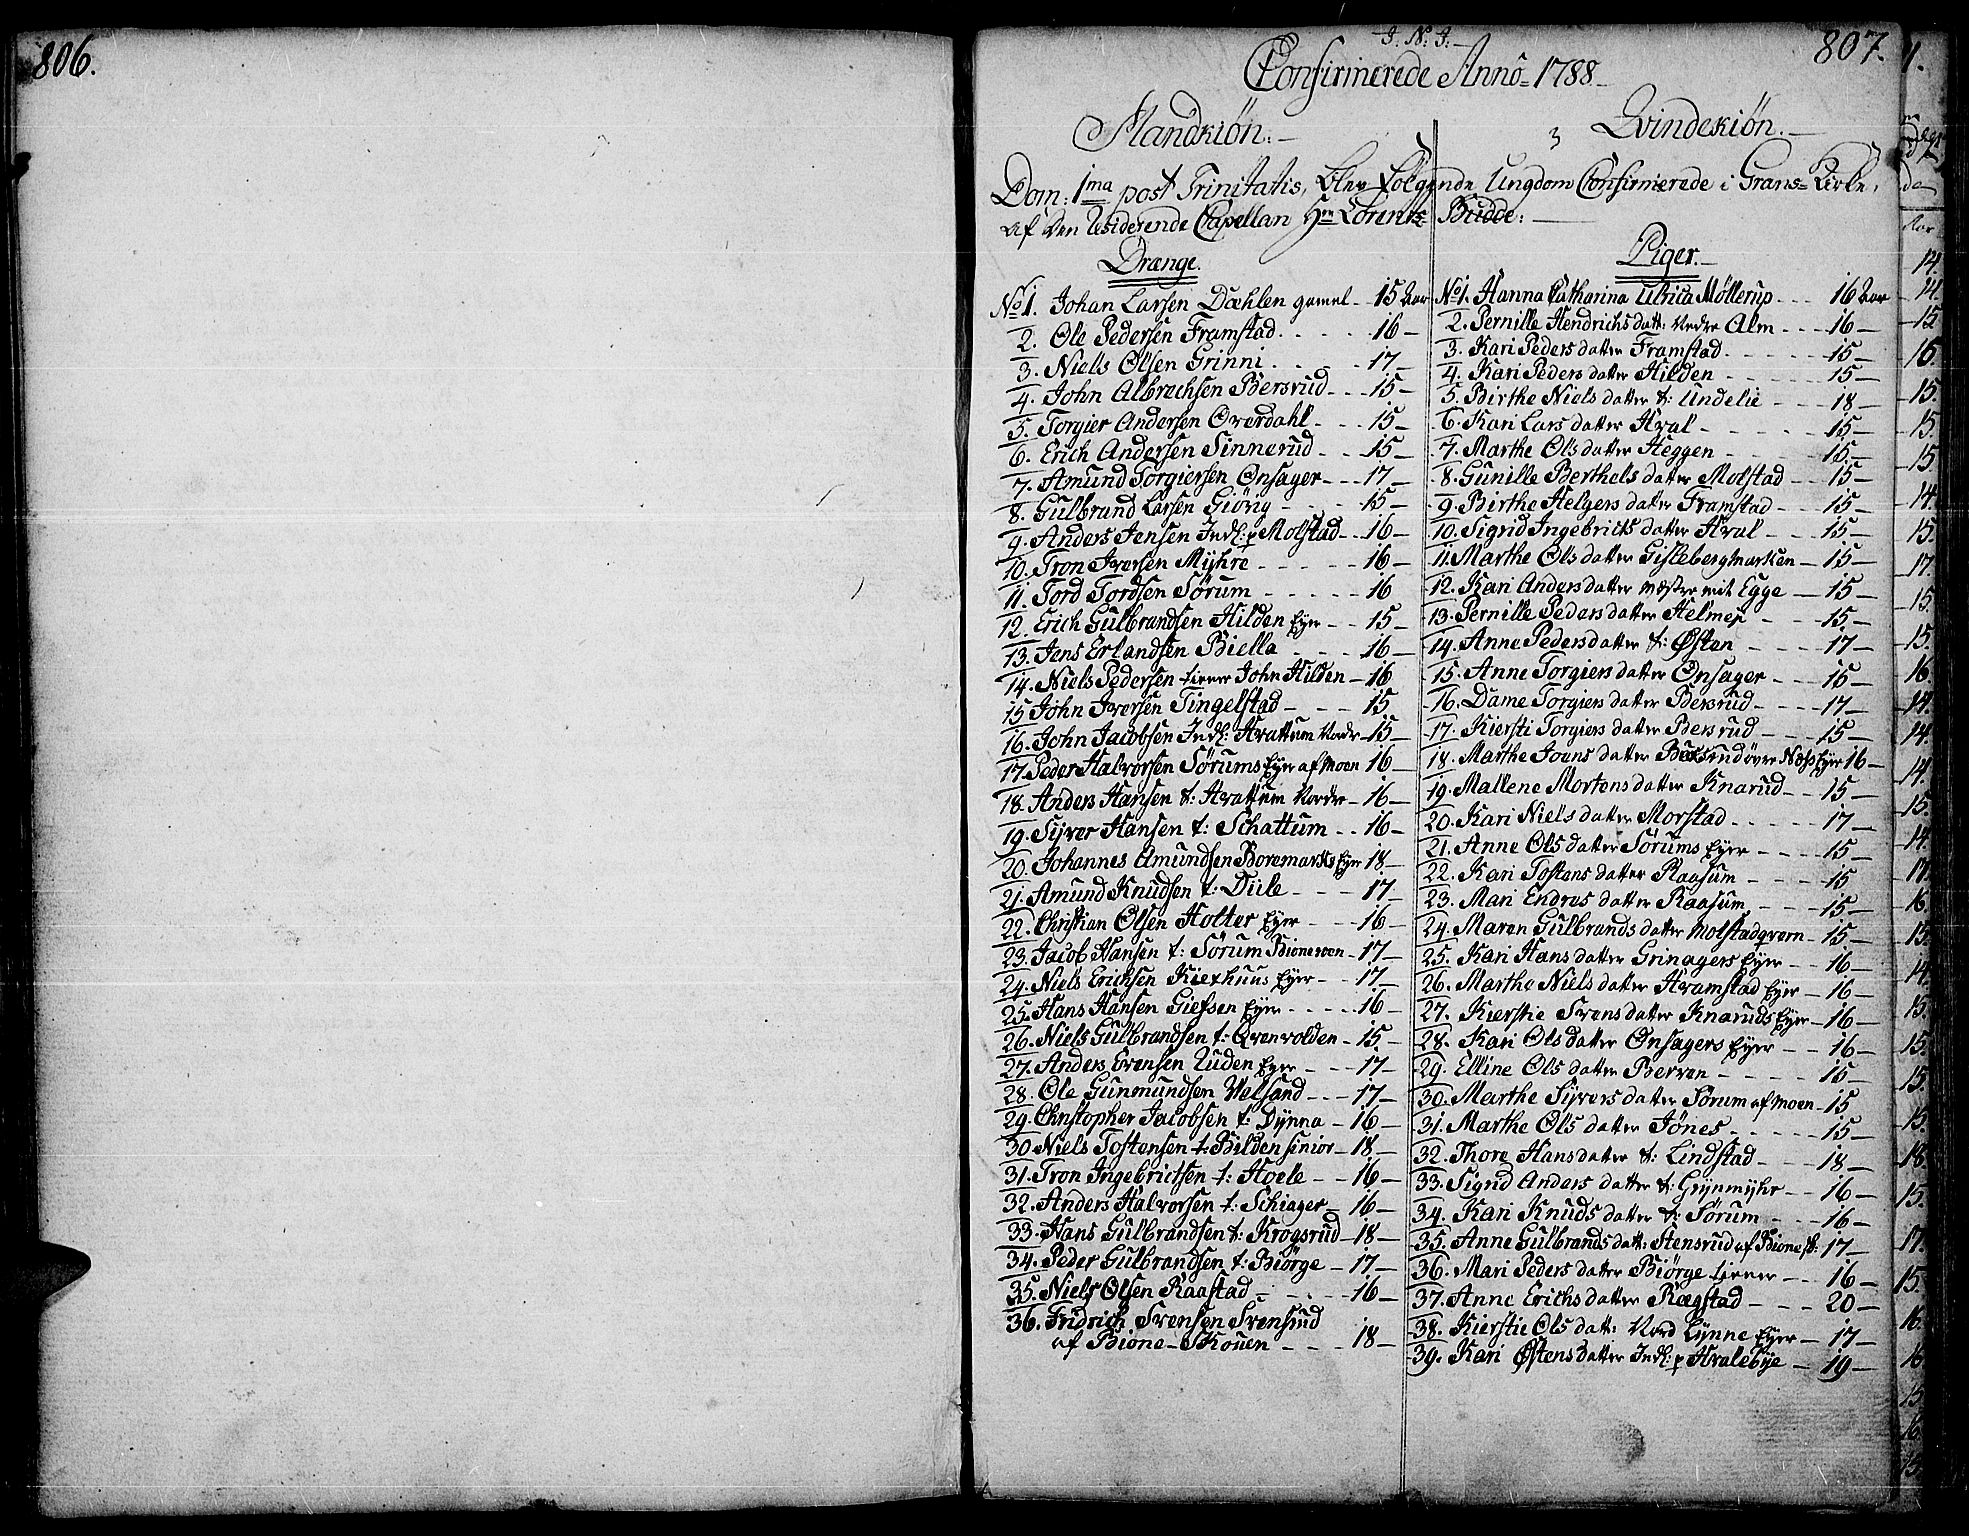 806.
807.
J. N. J.
Confirmerede Anno 1788
Mandkiøn:
Qvindekiøn.
Dom: 1ma post Trinitatis, blev følgende Ungdom Confirmerede i Grans Kirke,
af den Residerende Capellan Hrn Lorents Budde:
Drænge.
No 1. Johan Larsen Dæhlen gamel 15 Aar
2. Ole Pedersen Framstad 16
3. Niels Olsen Grinni 17
4. John Albrechsen Bersrud 15
5. Torgier Andersen Overdahl 15
6. Erich Andersen Sinnerud 15
7. Amund Torgiersen Onsager 17
8. Gulbrand Larsen Giövig 15
9. Anders Jensen Indl: p Molstad 16
10. Tron Iversen Mÿhre 16
11. Tord Tordsen Sørum 16
12. Erich Gulbrandsen Hilden Eyer 15
13. Jens Erlandsen Biella 16
14. Niels Pedersen tiener John Hilden 16
15 John Iversen Tingelstad 15
16. John Jacobsen Indl: Hvattum Nordr 15
17. Peder Halvorsen Sørums Eyer af Moen 16
18. Anders Hansen t: Hvattum Nordre 16
19. Syver Hansen t: Schattum 16
20. Johannes Amundsen Boremarks Eyer 18
21. Amund Knudsen t: Diile 17
22. Christian Olsen Holter Eyer 16
23. Jacob Hansen t: Sørum Bioneroen 17
24. Niels Erichsen Kierhuus Eyer 17
25. Hans Hansen Giefsen Eyer 16
26. Niels Gulbrandsen t: Qvenvolden 15
27. Anders Evensen Ruden Eyer 17
28. Ole Gunmundsen Velsand 17
29. Christopher Jacobsen t: Dynna 16
30 Niels Tostensen t: Bilden senior 18
31. Tron Ingebrictsen t: Hvele 16
32. Anders Halvorsen t: Schiager 16
33. Hans Gulbrandsen t: Krogsrud 18
34. Peder Gulbrandsen t: Biörge 17
35. Niels Olsen Raastad 16
36. Fridrich Svensen Svensrud
af Bione-Skouen 18
Piger.
No 1. Hanna Catharina Ulrica Møllerup 16 Aar
2. Pernille Hendrichsdatt: Nedre Alm 16
3. Kari Pedersdatter Framstad 15
4. Kari Pedersdatter Hilden 15
5. Birthe Nielsdatter t: Undelie 18
6. Kari Larsdatter Hval 15
7. Marthe Olsdatter Heggen 15
8. Gunille Berthelsdatter Molstad 15
9. Birthe Helgersdatter Framstad 15
10. Sigrid Ingebrictsdatter Hval 15
11. Marthe Olsdatter Gislebergmarken 15
12. Kari Andersdatter mit Egge 15
13. Pernille Pedersdatter Helmei 15
14. Anne Pedersdatter t: Østen 17
15. Anne Torgiersdatter Onsager 15
16. Dame Torgiersdatter Bersrud 17
17. Kiersti Torgiersdatter Bersrud 15
18. Marthe Joensdatter Bersrud øvre Næss Eyer 16
19. Mallene Mortensdatter Knarud 15
20. Kari Nielsdatter Morstad 17
21. Anne Olsdatter Sørums Eyer 15
22. Kari Tostensdatter Raasum 15
23. Mari Endresdatter Raasum 15
24. Maren Gulbrandsdatter Molstadqvern 15
25. Kari Hansdatter Grinagers Eyer 16
26. Marthe Nielsdatter Framstad Eyer 16
27. Kierstie Svensdatter Knaruds Eyer 16
28. Kari Olsdatter Onsagers Eyer 16
29. Elline Olsdatter Berven 15
30. Marthe Sÿversdatter Sørum af Moen 15
31. Marthe Olsdatter Jønes 15
32. Thore Hansdatter t: Lindstad 18
33. Sigrid Andersdatter t: Grÿnmÿhr 16
34. Kari Knudsdatter t: Sørum 16
35. Anne Gulbrandsdatt: Stensrud af Bionesk: 17
36. Mari Pedersdatter Biörge tiener 16
37. Anne Erichsdatter Rægstad 20
38. Kierstie Olsdatt: Nord Lynne Eyer 17
39. Kari Østensdatter Indl: p Hvalebÿe 19